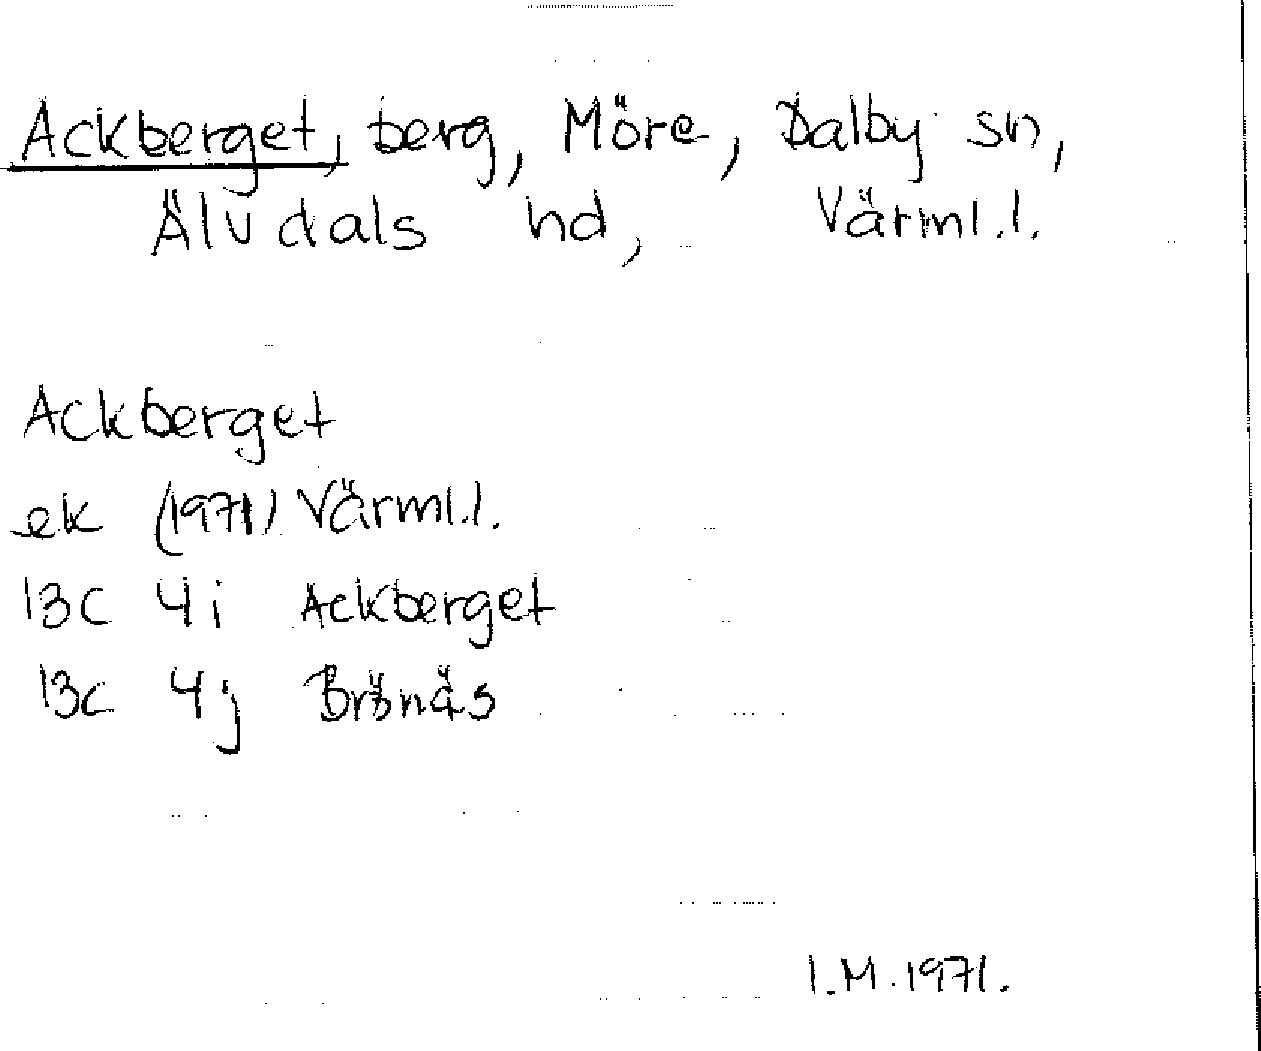 Ackberget, berg, Möre, Dalby sn,
Älvdals hd, Värml.l.
Ackberget
ek (1971) Värml.l.
13C 4i Ackberget
13C 4j Brönäs
I.M.1971.